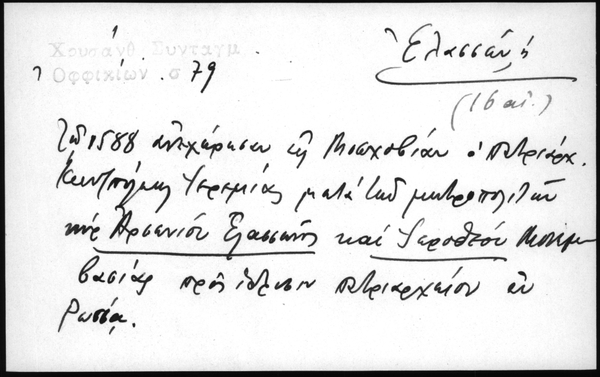 Χρυσάνθ. Συνταγμ
Ὀφφικίων σ 79
Ἐλασσών
(16 αἰ.)
Τῷ 1588 ἀνεχώρησεν εἰς Μοσχοβίαν ὁ πατριάρχ.
Κων/πόλεως Ἱερεμίας μετὰ τῶν μητροπολιτῶν
Ἀρσενίου Ἐλασσῶνος καὶ Ἱεροθέου Μονεμ
βασίας πρὸς ἵδρυσιν πατριαρχείου ἐν
Ρωσίᾳ.